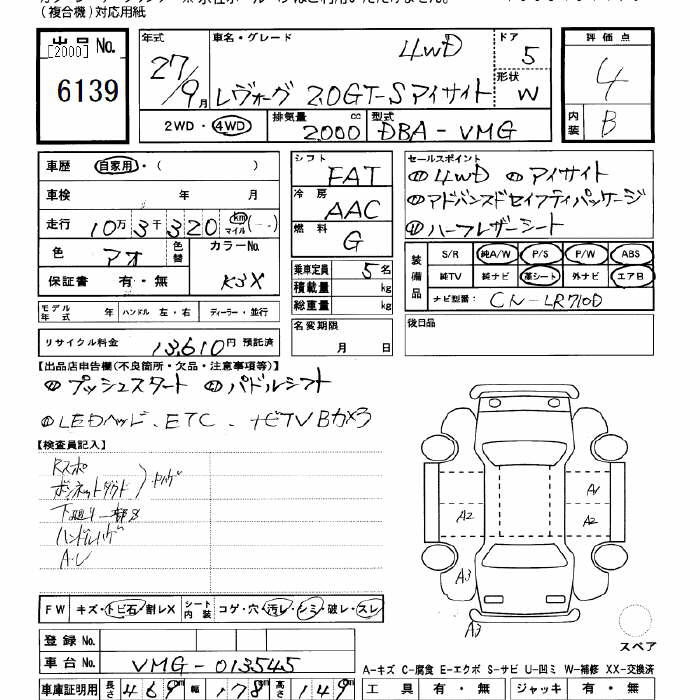 (複合機)対応用紙
出品 No.
[2000]
6139
年式
27/9月
車名・グレード
4WD
レヴォーグ 2.0GT-Sアイサイト
ドア
5
形状
W
評価点
4
内装
B
2WD・4WD
排気量
2000 cc
型式
DBA-VMG
車歴 自家用・( )
車検 年 月
走行 10万3千320 km マイル(--)
色 アオ 色替
カラーNo. K3X
保証書 有・無
シフト FAT
冷房 AAC
燃料 G
乗車定員 5名
積載量 kg
総重量 kg
セールスポイント
①4WD ②アイサイト
③アドバンスドセイフティパッケージ
④ハーフレザーシート
装備品
S/R 純A/W P/S P/W ABS
純TV 純ナビ 革シート 外ナビ エアB
ナビ型番: CN-LR710D
モデル年式 年 ハンドル 左・右 ディーラー・並行
名変期限
月 日
後日品
リサイクル料金 13,610円 預託済
【出品店申告欄(不良箇所・欠品・注意事項等)】
プッシュスタート パドルシフト
LEDヘッド、ETC、ナビTV Bカメラ
【検査員記入】
Rスポ
ボンネットダクト
下廻り一部S
A・U
A1
A2
A2
A3
A3
FW キズ・トビ石・割レX シート内装 コゲ・穴・汚レ・シミ・破レ・スレ
スペア
登録 No.
車台 No. VMG-013545
A-キズ C-腐食 E-エクボ S-サビ U-凹ミ W-補修 XX-交換済
車庫証明用 長さ 469cm 幅 178cm 高さ 149cm
工具 有・無 ジャッキ 有・無